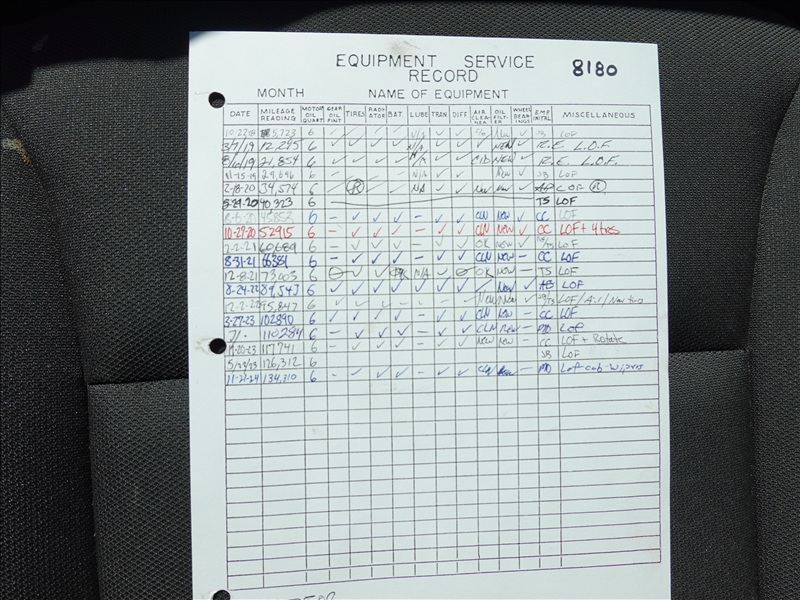 EQUIPMENT SERVICE 8180
RECORD
MONTH NAME OF EQUIPMENT
DATE MILEAGE READING MOTOR OIL QUART GEAR OIL PINT TIRES RADIATOR BAT. LUBE TRAN. DIFF. AIR CLEANER OIL FILTER WHEEL BEARINGS EMP INITIAL MISCELLANEOUS
5,723 6 N/A New JB LOF
3/7/19 12,295 6 ✓ ✓ ✓ ✓ N/A ✓ ✓ ✓ NEW ✓ R.E. L.O.F.
21,854 6 ✓ ✓ ✓ ✓ N/A ✓ ✓ NEW ✓ R.E. L.O.F.
11-15-19 29,696 6 N/A ✓ ✓ New ✓ JB LOF
2-18-20 34,574 6 R N/A ✓ ✓ New New ✓ LOF R
5-29-20 40,323 6 TS LOF
8-5-20 45852 6 - ✓ ✓ ✓ - ✓ ✓ CLN NEW ✓ CC LOF
10-27-20 52915 6 - ✓ ✓ ✓ - ✓ ✓ CLN NEW ✓ CC LOF + 4 tires
2-2-21 60684 6 - ✓ ✓ ✓ - ✓ ✓ OK NEW ✓ LOF
8-31-21 66381 6 - ✓ ✓ ✓ - ✓ ✓ CLN NEW - CC LOF
12-8-21 73,003 6 ✓ ✓ OK N/A ✓ OK NOW - TS LOF
8-24-22 89,543 6 ✓ ✓ ✓ ✓ ✓ ✓ ✓ New ✓ LOF
95,847 6 New New ✓ LOF/Air/New tires
3-27-23 102890 6 - ✓ ✓ ✓ - ✓ ✓ CLN NEW - CC LOF
110284 6 - ✓ ✓ ✓ - ✓ ✓ CLN new - MD LOF
117741 6 - ✓ ✓ ✓ - ✓ ✓ new new - CC LOF + Rotate
126,312 6 JB LOF
11-21-24 134,310 6 - ✓ ✓ ✓ - ✓ ✓ CLN New - MD LOF-cab-wipers